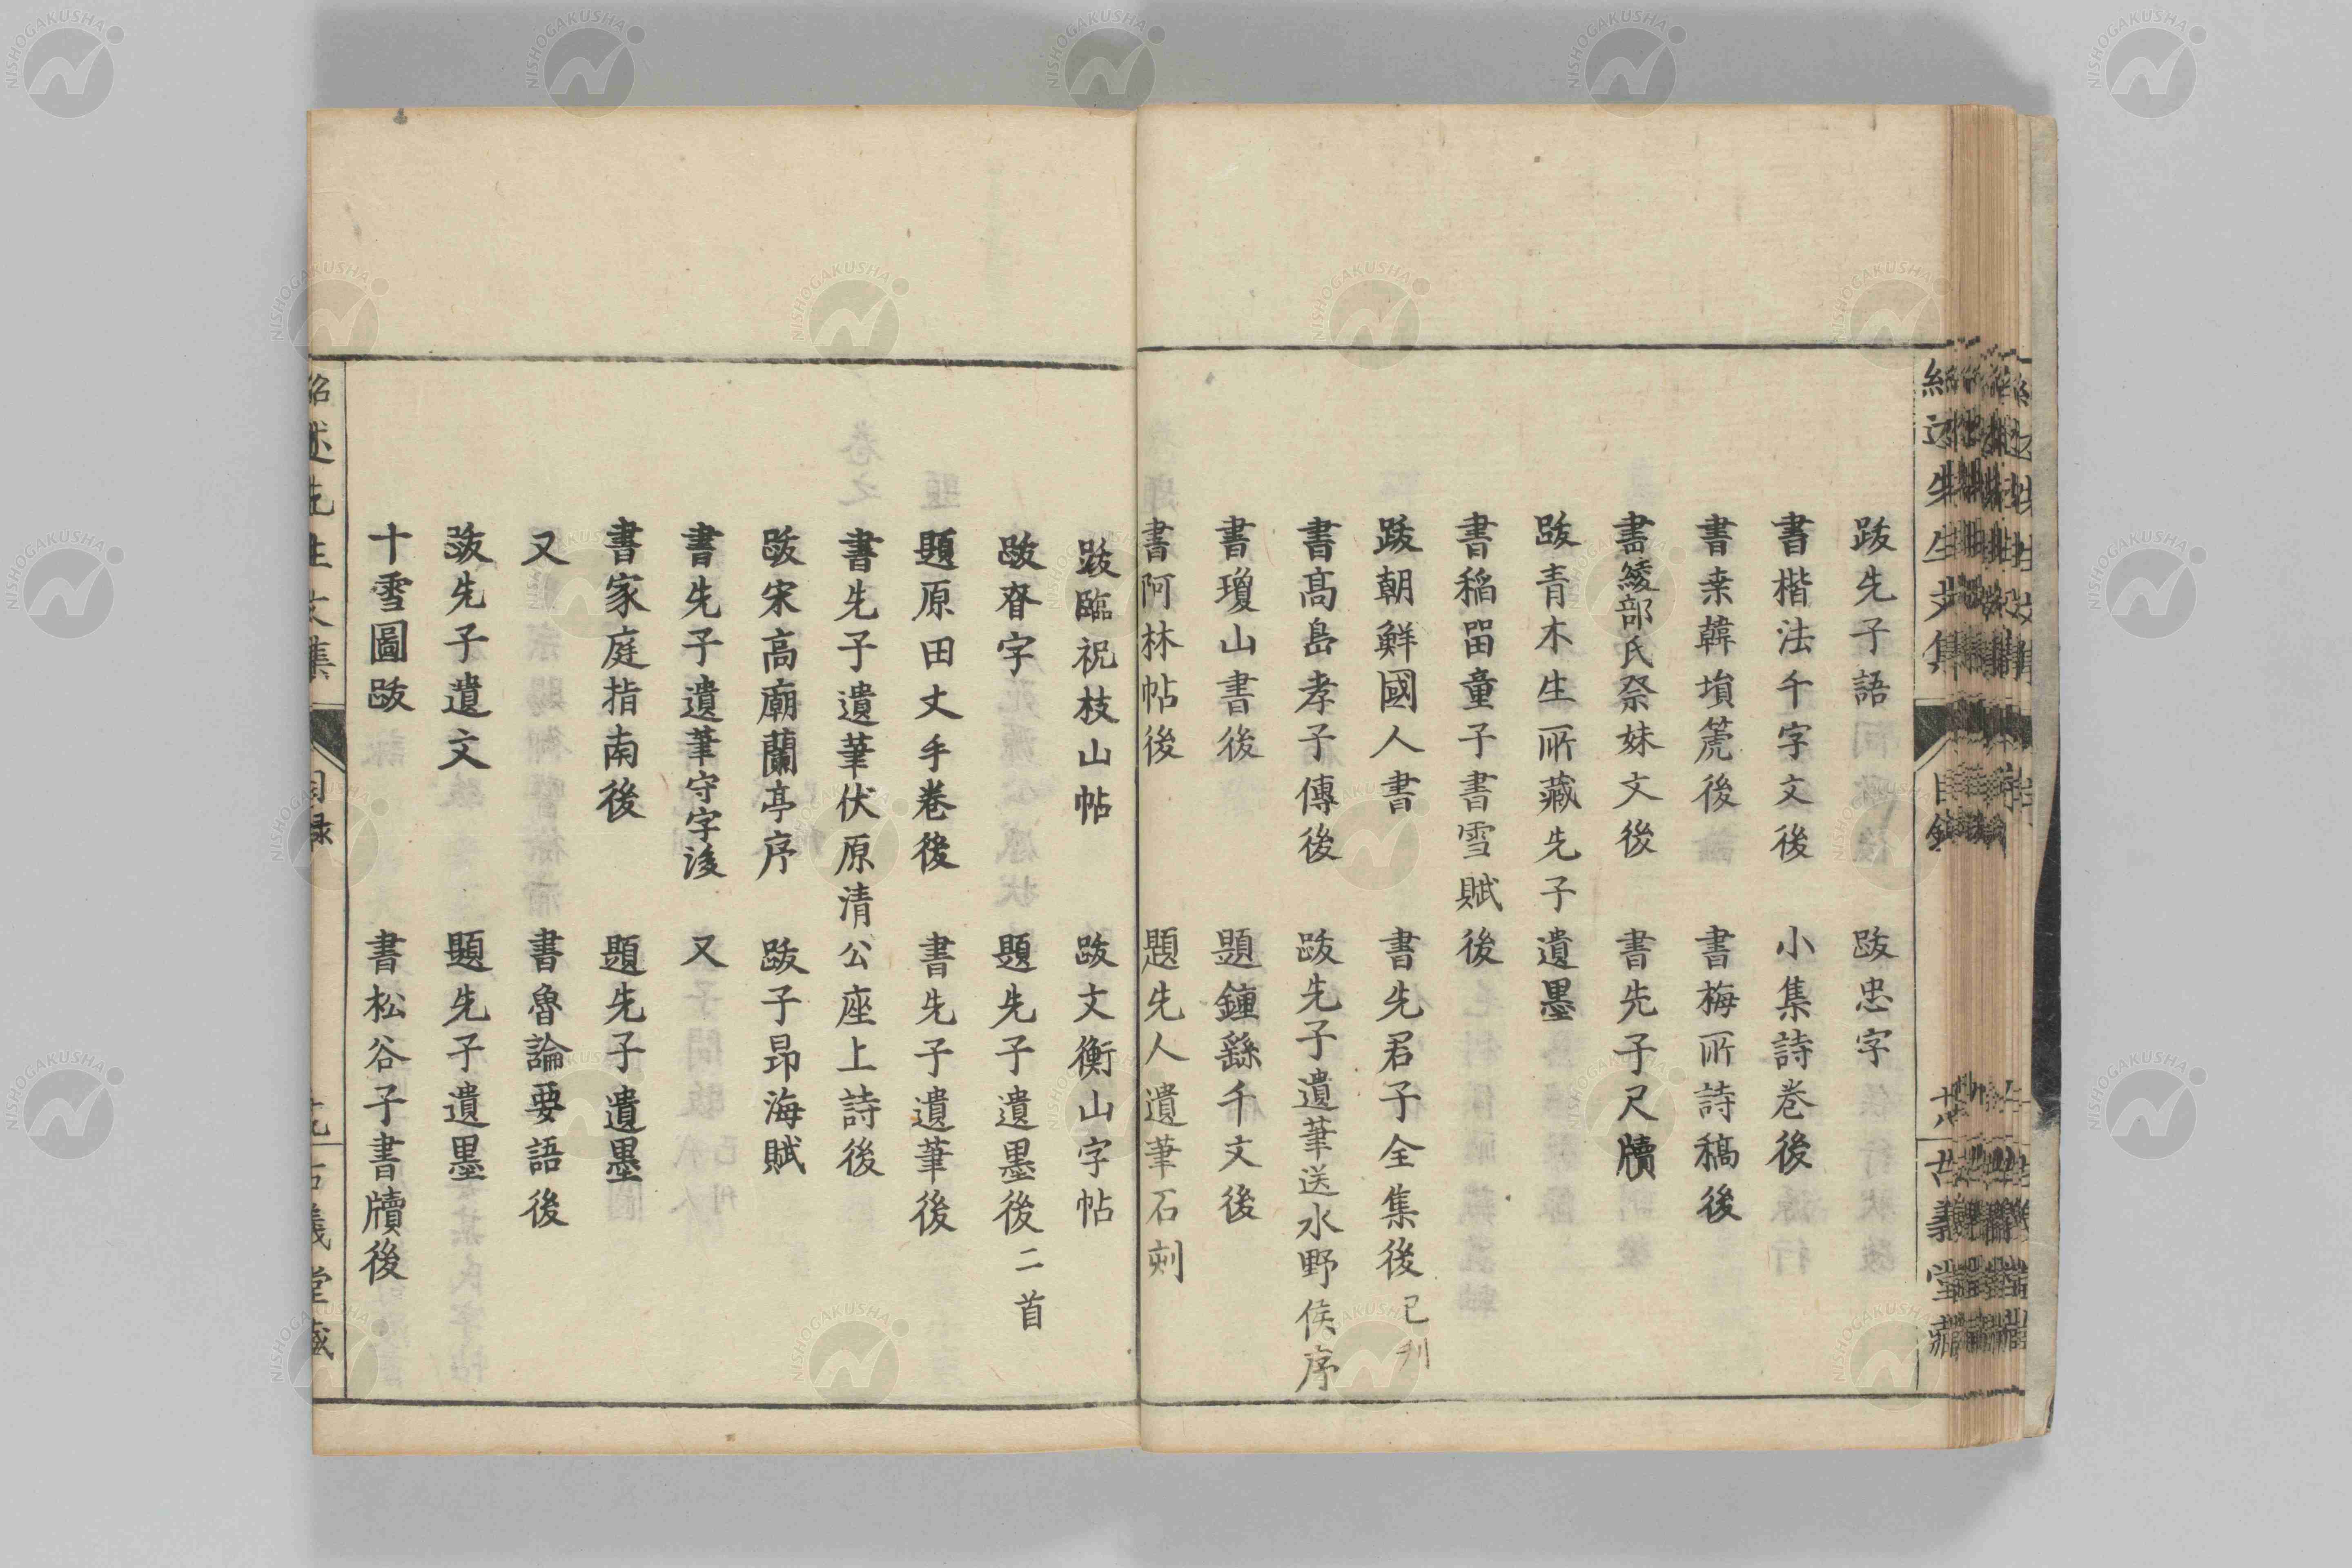 跋先子語　跋忠字
書楷法千字文後　小集詩巻後
書桒韓塤箎後　書梅所詩稿後
書綾部氏祭妹文後　書先子尺牘
跋青木生所藏先子遺墨
書稻畱童子書雪賦後
跋朝鮮國人書　書先君子全集後 已刋
書髙島孝子傳後　跋先子遺筆送水野侯序
書瓊山書後　題鍾繇千文後
書阿林帖後　題先人遺筆石刻
跋臨祝枝山帖　跋文衡山字帖
跋脊字　題先子遺墨後二首
題原田丈手巻後　書先子遺筆後
書先子遺筆伏原清公座上詩後
跋宋高廟蘭亭序　跋子昂海賦
書先子遺筆守字後　又
書家庭指南後　題先子遺墨
又　書魯論要語後
跋先子遺文　題先子遺墨
十雪圖跋　書松谷子書牘後
紹述先生文集　目録　古義堂藏
NISHOGAKUSHA